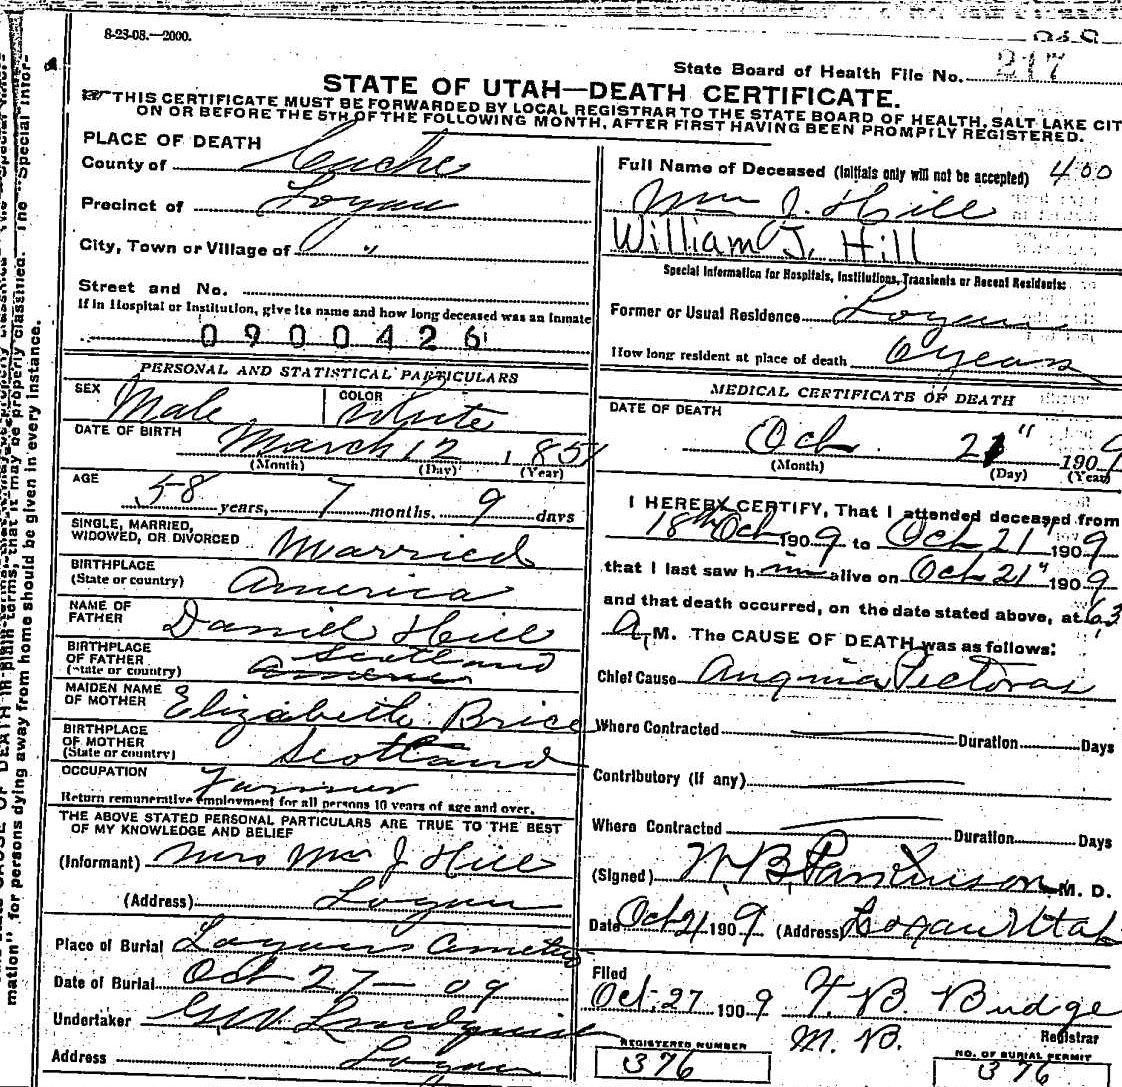 8-23-08.—2000.
State Board of Health File No. 217
STATE OF UTAH—DEATH CERTIFICATE.
THIS CERTIFICATE MUST BE FORWARDED BY LOCAL REGISTRAR TO THE STATE BOARD OF HEALTH, SALT LAKE CIT
ON OR BEFORE THE 5TH OF THE FOLLOWING MONTH, AFTER FIRST HAVING BEEN PROMPTLY REGISTERED.
PLACE OF DEATH
County of Cache
Precinct of Logan
City, Town or Village of "
Street and No.
If in Hospital or Institution, give its name and how long deceased was an inmate
0900426
PERSONAL AND STATISTICAL PARTICULARS
SEX Male COLOR White
DATE OF BIRTH March 12 1851
(Month) (Day) (Year)
AGE 58 years, 7 months. 9 days
SINGLE, MARRIED,
WIDOWED, OR DIVORCED Married
BIRTHPLACE
(State or country) America
NAME OF
FATHER Daniel Hill
BIRTHPLACE
OF FATHER Scotland
(State or country) America
MAIDEN NAME
OF MOTHER Elizabeth Brice
BIRTHPLACE
OF MOTHER
(State or country) Scotland
OCCUPATION Farmer
Return remunerative employment for all persons 10 years of age and over.
THE ABOVE STATED PERSONAL PARTICULARS ARE TRUE TO THE BEST
OF MY KNOWLEDGE AND BELIEF
(Informant) Mrs Wm J Hill
(Address) Logan
Place of Burial Logan Cemetery
Date of Burial Oct 27 — 09
Undertaker Lindquist
Address Logan
Full Name of Deceased (Initials only will not be accepted) 400
Wm J. Hill
William J. Hill
Special Information for Hospitals, Institutions, Transients or Recent Residents:
Former or Usual Residence Logan
How long resident at place of death 6 years
MEDICAL CERTIFICATE OF DEATH
DATE OF DEATH
Oct. 21" 1909
(Month) (Day) (Year)
I HEREBY CERTIFY, That I attended deceased from
18th Oct 1909 to Oct 21" 1909
that I last saw him alive on Oct 21" 1909
and that death occurred, on the date stated above, at 6.3
A.M. The CAUSE OF DEATH was as follows:
Chief Cause Anginia Pectoras
Where Contracted Duration Days
Contributory (if any)
Where Contracted Duration Days
(Signed) W. B. Parkinson M. D.
Date Oct 21 1909 (Address) Logan Utah
Filed
Oct. 27 1909 T. B. Budge
M. D. Registrar
REGISTERED NUMBER
376
NO. OF BURIAL PERMIT
376
mation" for persons dying away from home should be given in every instance.